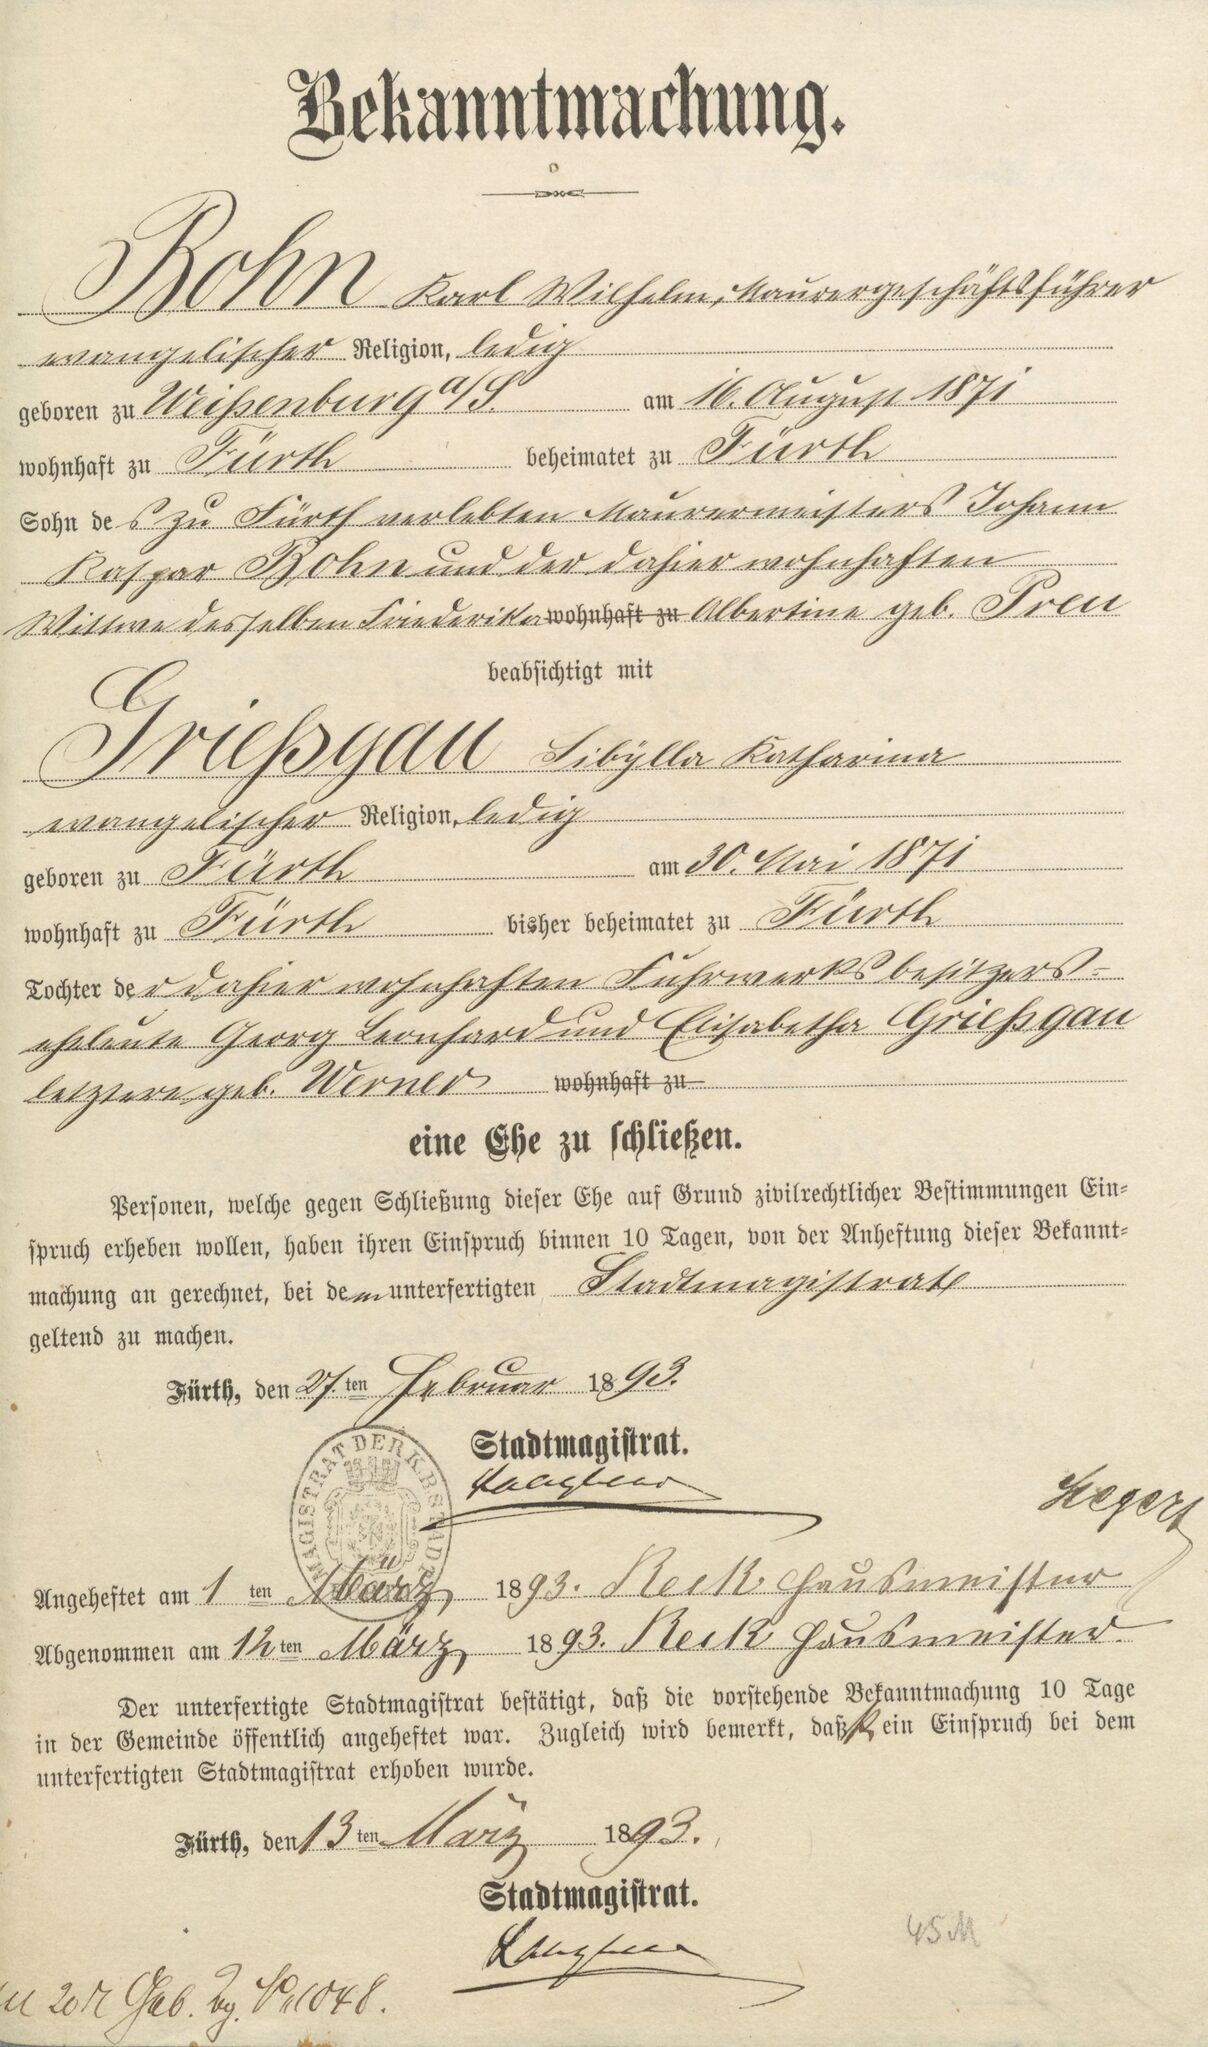 Bekanntmachung.
Bohn Karl Wilhelm, Maurergeschäftsführer
evangelischer Religion, ledig
geboren zu Weißenburg a/S. am 16. August 1871
wohnhaft zu Fürth beheimatet zu Fürth
Sohn des zu Fürth verlebten Maurermeisters Johann
Kaspar Bohn und der dahier wohnhaften
Wittwe desselben Friederika wohnhaft zu Albertine geb. Preu
beabsichtigt mit
Grießgau Sibylla Katharina
evangelischer Religion, ledig
geboren zu Fürth am 30. Mai 1871
wohnhaft zu Fürth bisher beheimatet zu Fürth
Tochter der dahier wohnhaften Fuhrwerksbesitzers-
eheleute Georg Leonhard und Elisabetha Grießgau
letztere geb. Werner wohnhaft zu
eine Ehe zu schließen.
Personen, welche gegen Schließung dieser Ehe auf Grund zivilrechtlicher Bestimmungen Ein-
spruch erheben wollen, haben ihren Einspruch binnen 10 Tagen, von der Anheftung dieser Bekannt-
machung an gerechnet, bei dem unterfertigten Stadtmagistrate
geltend zu machen.
Fürth, den 27.ten Februar 1893.
Stadtmagistrat.
MAGISTRAT DER K. B. STADT
Hegert
Angeheftet am 1ten März 1893. Reck Hausmeister
Abgenommen am 12ten März 1893. Reck Hausmeister.
Der unterfertigte Stadtmagistrat bestätigt, daß die vorstehende Bekanntmachung 10 Tage
in der Gemeinde öffentlich angeheftet war. Zugleich wird bemerkt, daß kein Einspruch bei dem
unterfertigten Stadtmagistrat erhoben wurde.
Fürth, den 13ten März 1893.
Stadtmagistrat.
45 M
Geb. 1048.